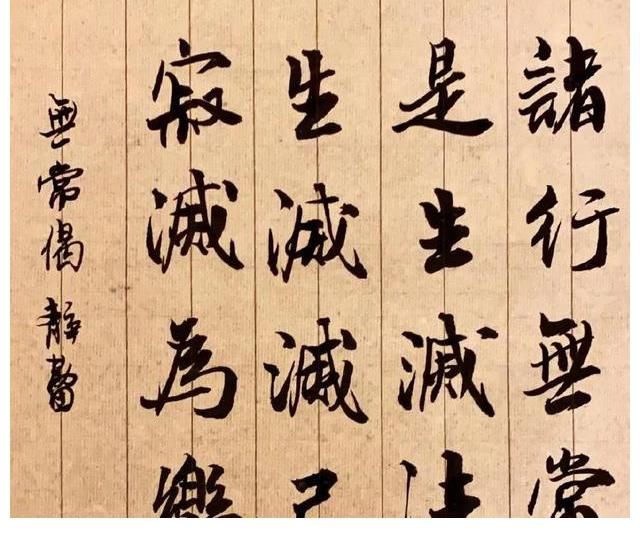 諸行無常
是生滅法
生滅滅已
寂滅為樂
無常偈 静蕾